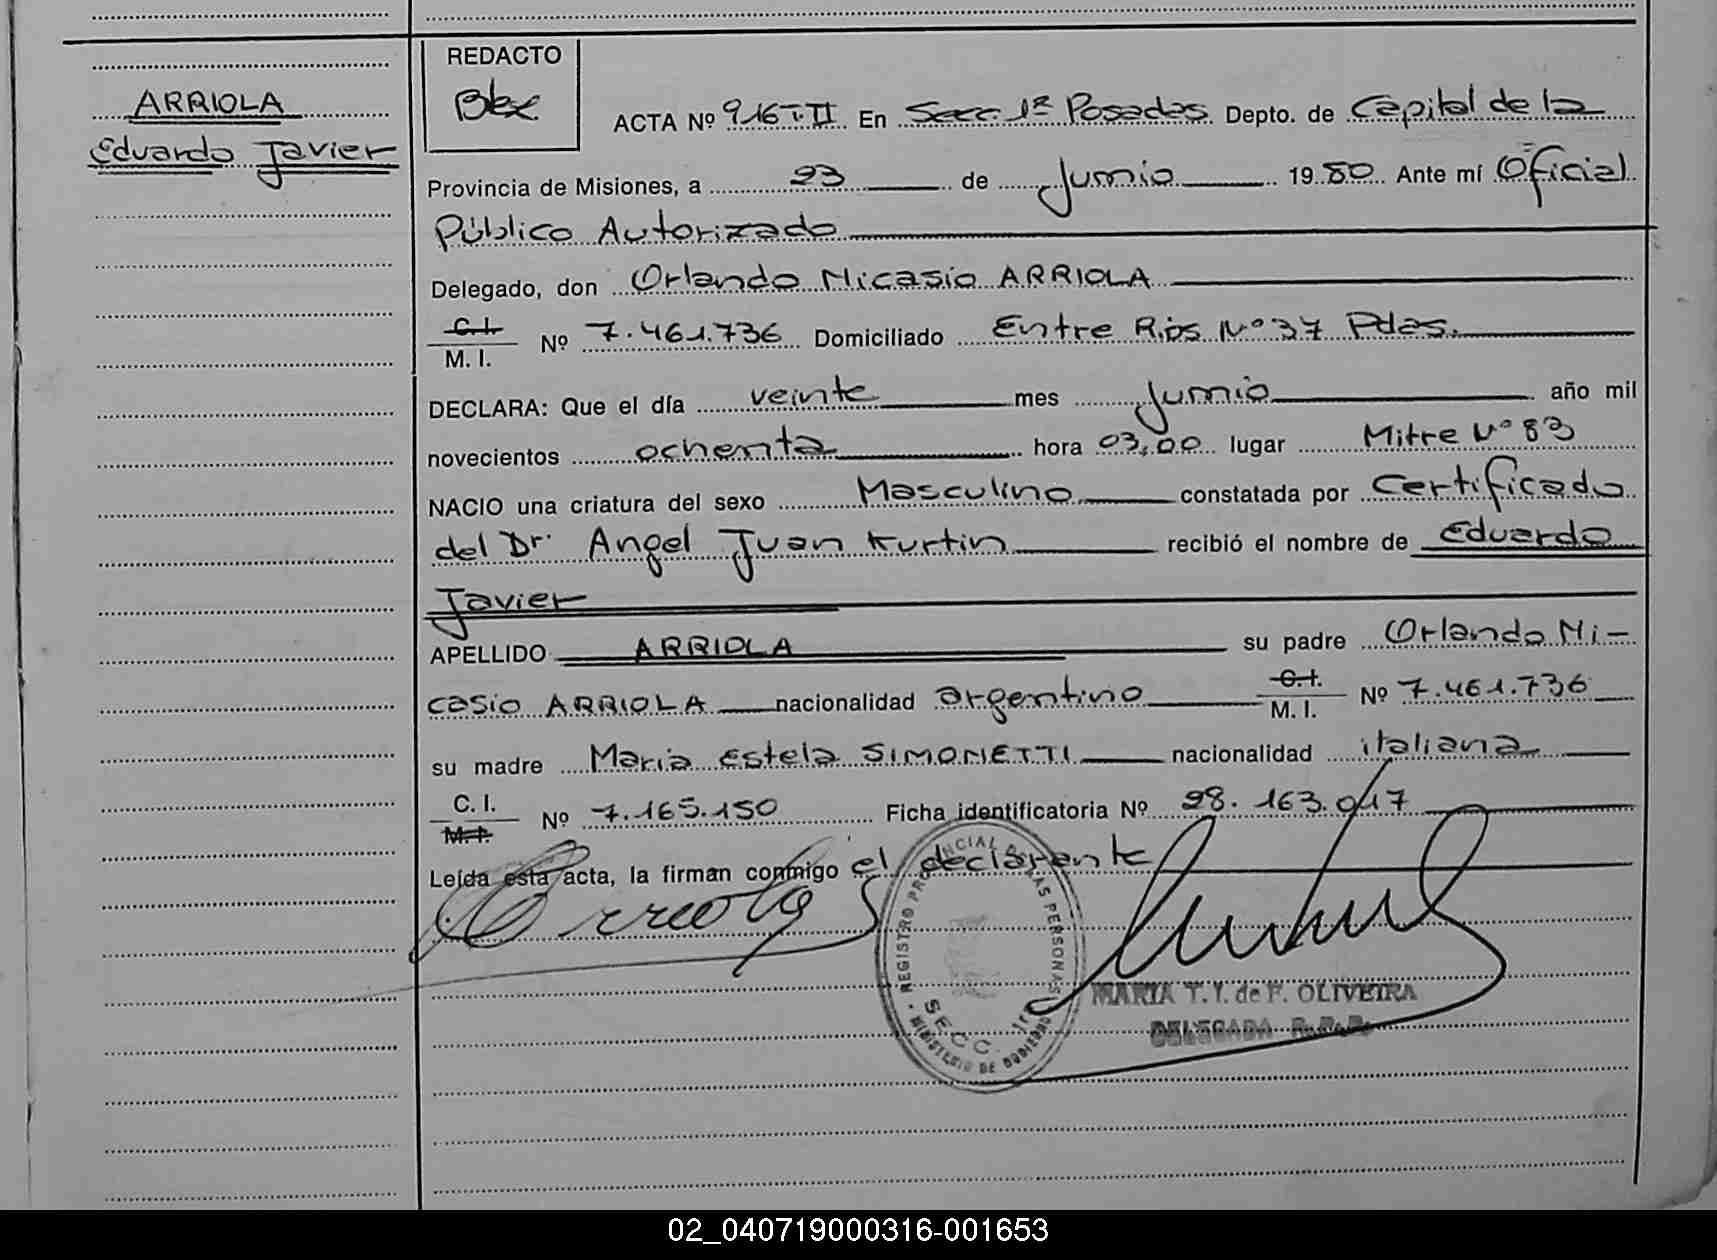 ARRIOLA
Eduardo Javier
REDACTO
ACTA Nº 916-T-II En Secc. 1ª Posadas Depto. de Capital de la
Provincia de Misiones, a 23 de Junio 1980 Ante mí Oficial
Público Autorizado
Delegado, don Orlando Nicasio ARRIOLA
C.I.
M. I. Nº 7.461.736 Domiciliado Entre Rios Nº 37 Pdas.
DECLARA: Que el día veinte mes Junio año mil
novecientos ochenta hora 03,00 lugar Mitre Nº 83
NACIO una criatura del sexo Masculino constatada por Certificado
del Dr. Angel Juan Kurtin recibió el nombre de Eduardo
Javier
APELLIDO ARRIOLA su padre Orlando Ni-
casio ARRIOLA nacionalidad argentino C.I. M. I. Nº 7.461.736
su madre Maria Estela SIMONETTI nacionalidad italiana
C. I.
M.I. Nº 7.165.150 Ficha identificatoria Nº 28.163.017
Leída esta acta, la firman conmigo el declarante
REGISTRO PROVINCIAL DE LAS PERSONAS
SECC. 1ra
MINISTERIO DE GOBIERNO
MARIA T. Y. de F. OLIVEIRA
DELEGADA R.P.P.
02_040719000316-001653